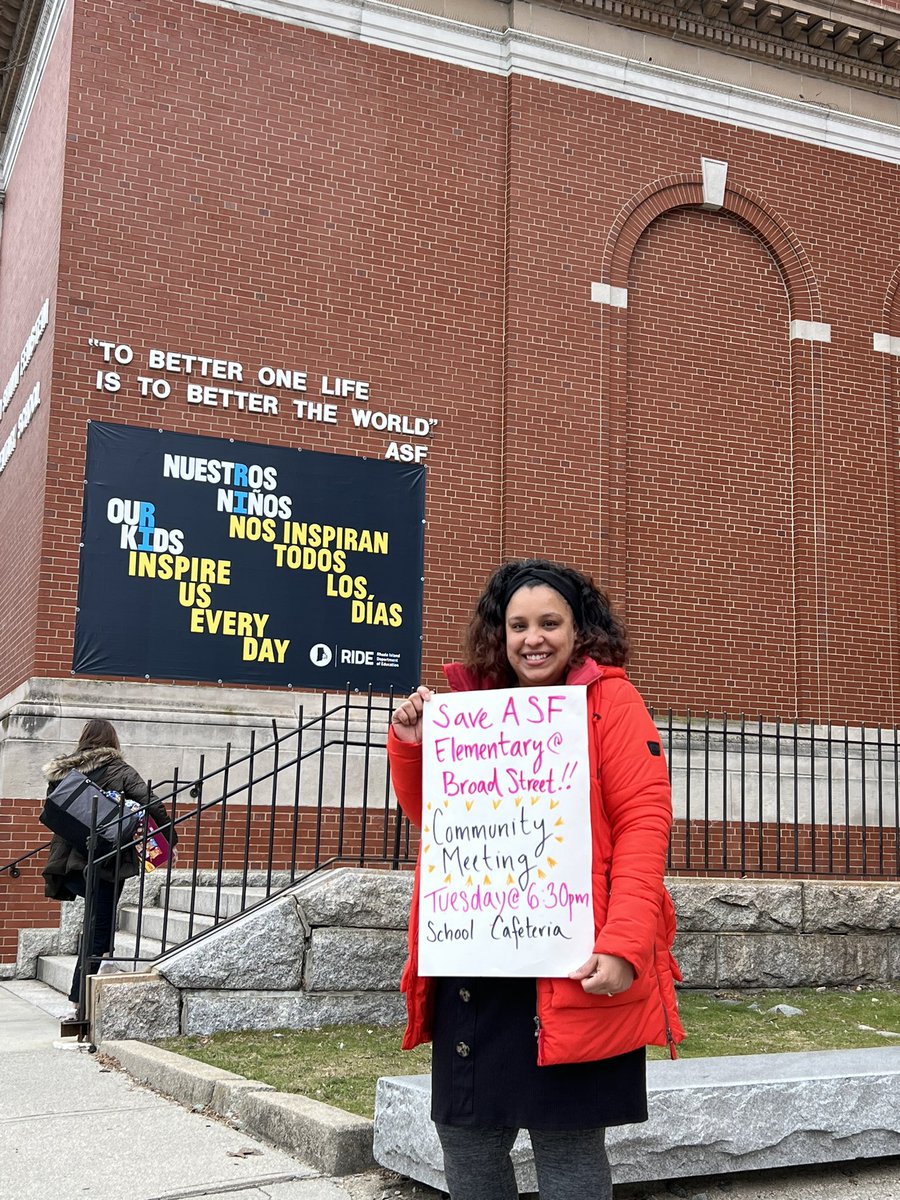 "TO BETTER ONE LIFE
IS TO BETTER THE WORLD"
ASF
NUESTROS
NIÑOS
NOS INSPIRAN
TODOS
LOS
DÍAS
OUR
KIDS
INSPIRE
US
EVERY
DAY
RIDE
Rhode Island
Department
of Education
SCHOOL
Save ASF
Elementary@
Broad Street!!
Community
Meeting
Tuesday@6:30pm
School Cafeteria